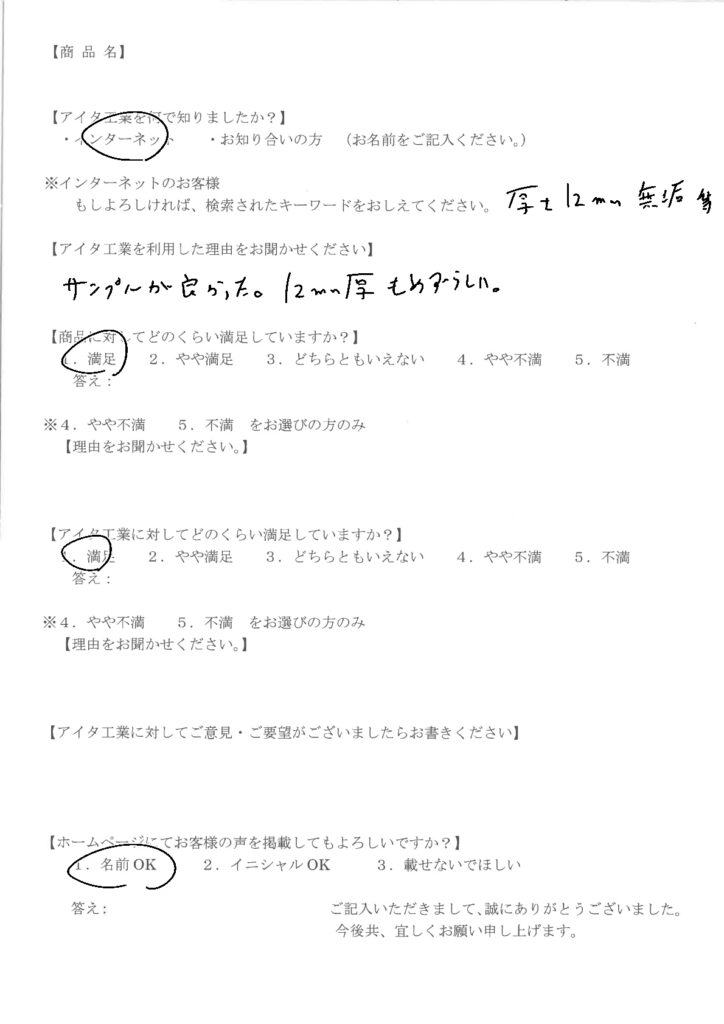 【商 品 名】
【アイタ工業を何で知りましたか？】
・インターネット　　・お知り合いの方　（お名前をご記入ください。）
※インターネットのお客様
もしよろしければ、検索されたキーワードをおしえてください。 厚さ12mm 無垢 等
【アイタ工業を利用した理由をお聞かせください】
サンプルが良かった。12mm厚もめずらしい。
【商品に対してどのくらい満足していますか？】
１．満足　　２．やや満足　　３．どちらともいえない　　４．やや不満　　５．不満
答え：
※４．やや不満　　５．不満　をお選びの方のみ
【理由をお聞かせください。】
【アイタ工業に対してどのくらい満足していますか？】
１．満足　　２．やや満足　　３．どちらともいえない　　４．やや不満　　５．不満
答え：
※４．やや不満　　５．不満　をお選びの方のみ
【理由をお聞かせください。】
【アイタ工業に対してご意見・ご要望がございましたらお書きください】
【ホームページにてお客様の声を掲載してもよろしいですか？】
１．名前OK　　２．イニシャルOK　　３．載せないでほしい
答え：　　ご記入いただきまして、誠にありがとうございました。
今後共、宜しくお願い申し上げます。